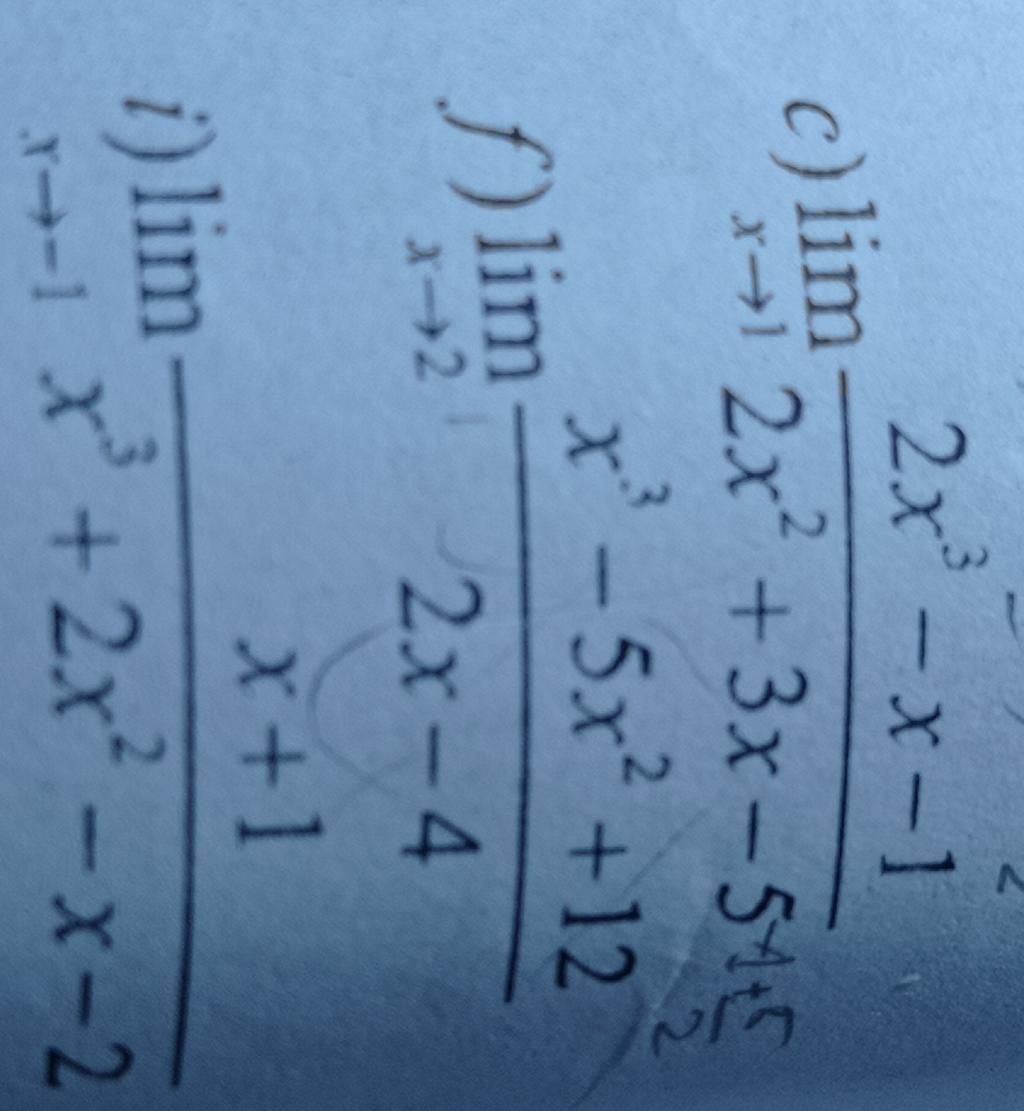 c) lim x→1 (2x³ − x − 1) / (2x² + 3x − 5)
f) lim x→2 (x³ − 5x² + 12) / (2x − 4)
i) lim x→−1 (x + 1) / (x³ + 2x² − x − 2)